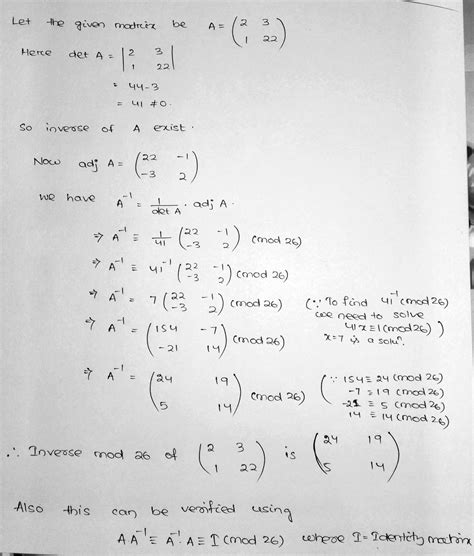 Let the given matrix be A = (2 3
1 22)
Here det A = |2 3
1 22|
= 44-3
= 41 ≠ 0.
So inverse of A exist.
Now adj A = (22 -1
-3 2)
we have A⁻¹ = 1/det A . adj A.
⇒ A⁻¹ ≡ 1/41 (22 -1
-3 2) (mod 26)
⇒ A⁻¹ ≡ 41⁻¹ (22 -1
-3 2) (mod 26)
⇒ A⁻¹ = 7 (22 -1
-3 2) (mod 26) (∵ To find 41⁻¹ (mod 26)
we need to solve
41x ≡ 1 (mod 26)
x=7 is a soluⁿ.)
⇒ A⁻¹ = (154 -7
-21 14) (mod 26)
⇒ A⁻¹ = (24 19
5 14) (mod 26) (∵ 154 ≡ 24 (mod 26)
-7 ≡ 19 (mod 26)
-21 ≡ 5 (mod 26)
14 ≡ 14 (mod 26))
∴ Inverse mod 26 of (2 3
1 22) is (24 19
5 14)
Also this can be verified using
A A⁻¹ ≡ A⁻¹. A ≡ I (mod 26) where I = Identity matrix